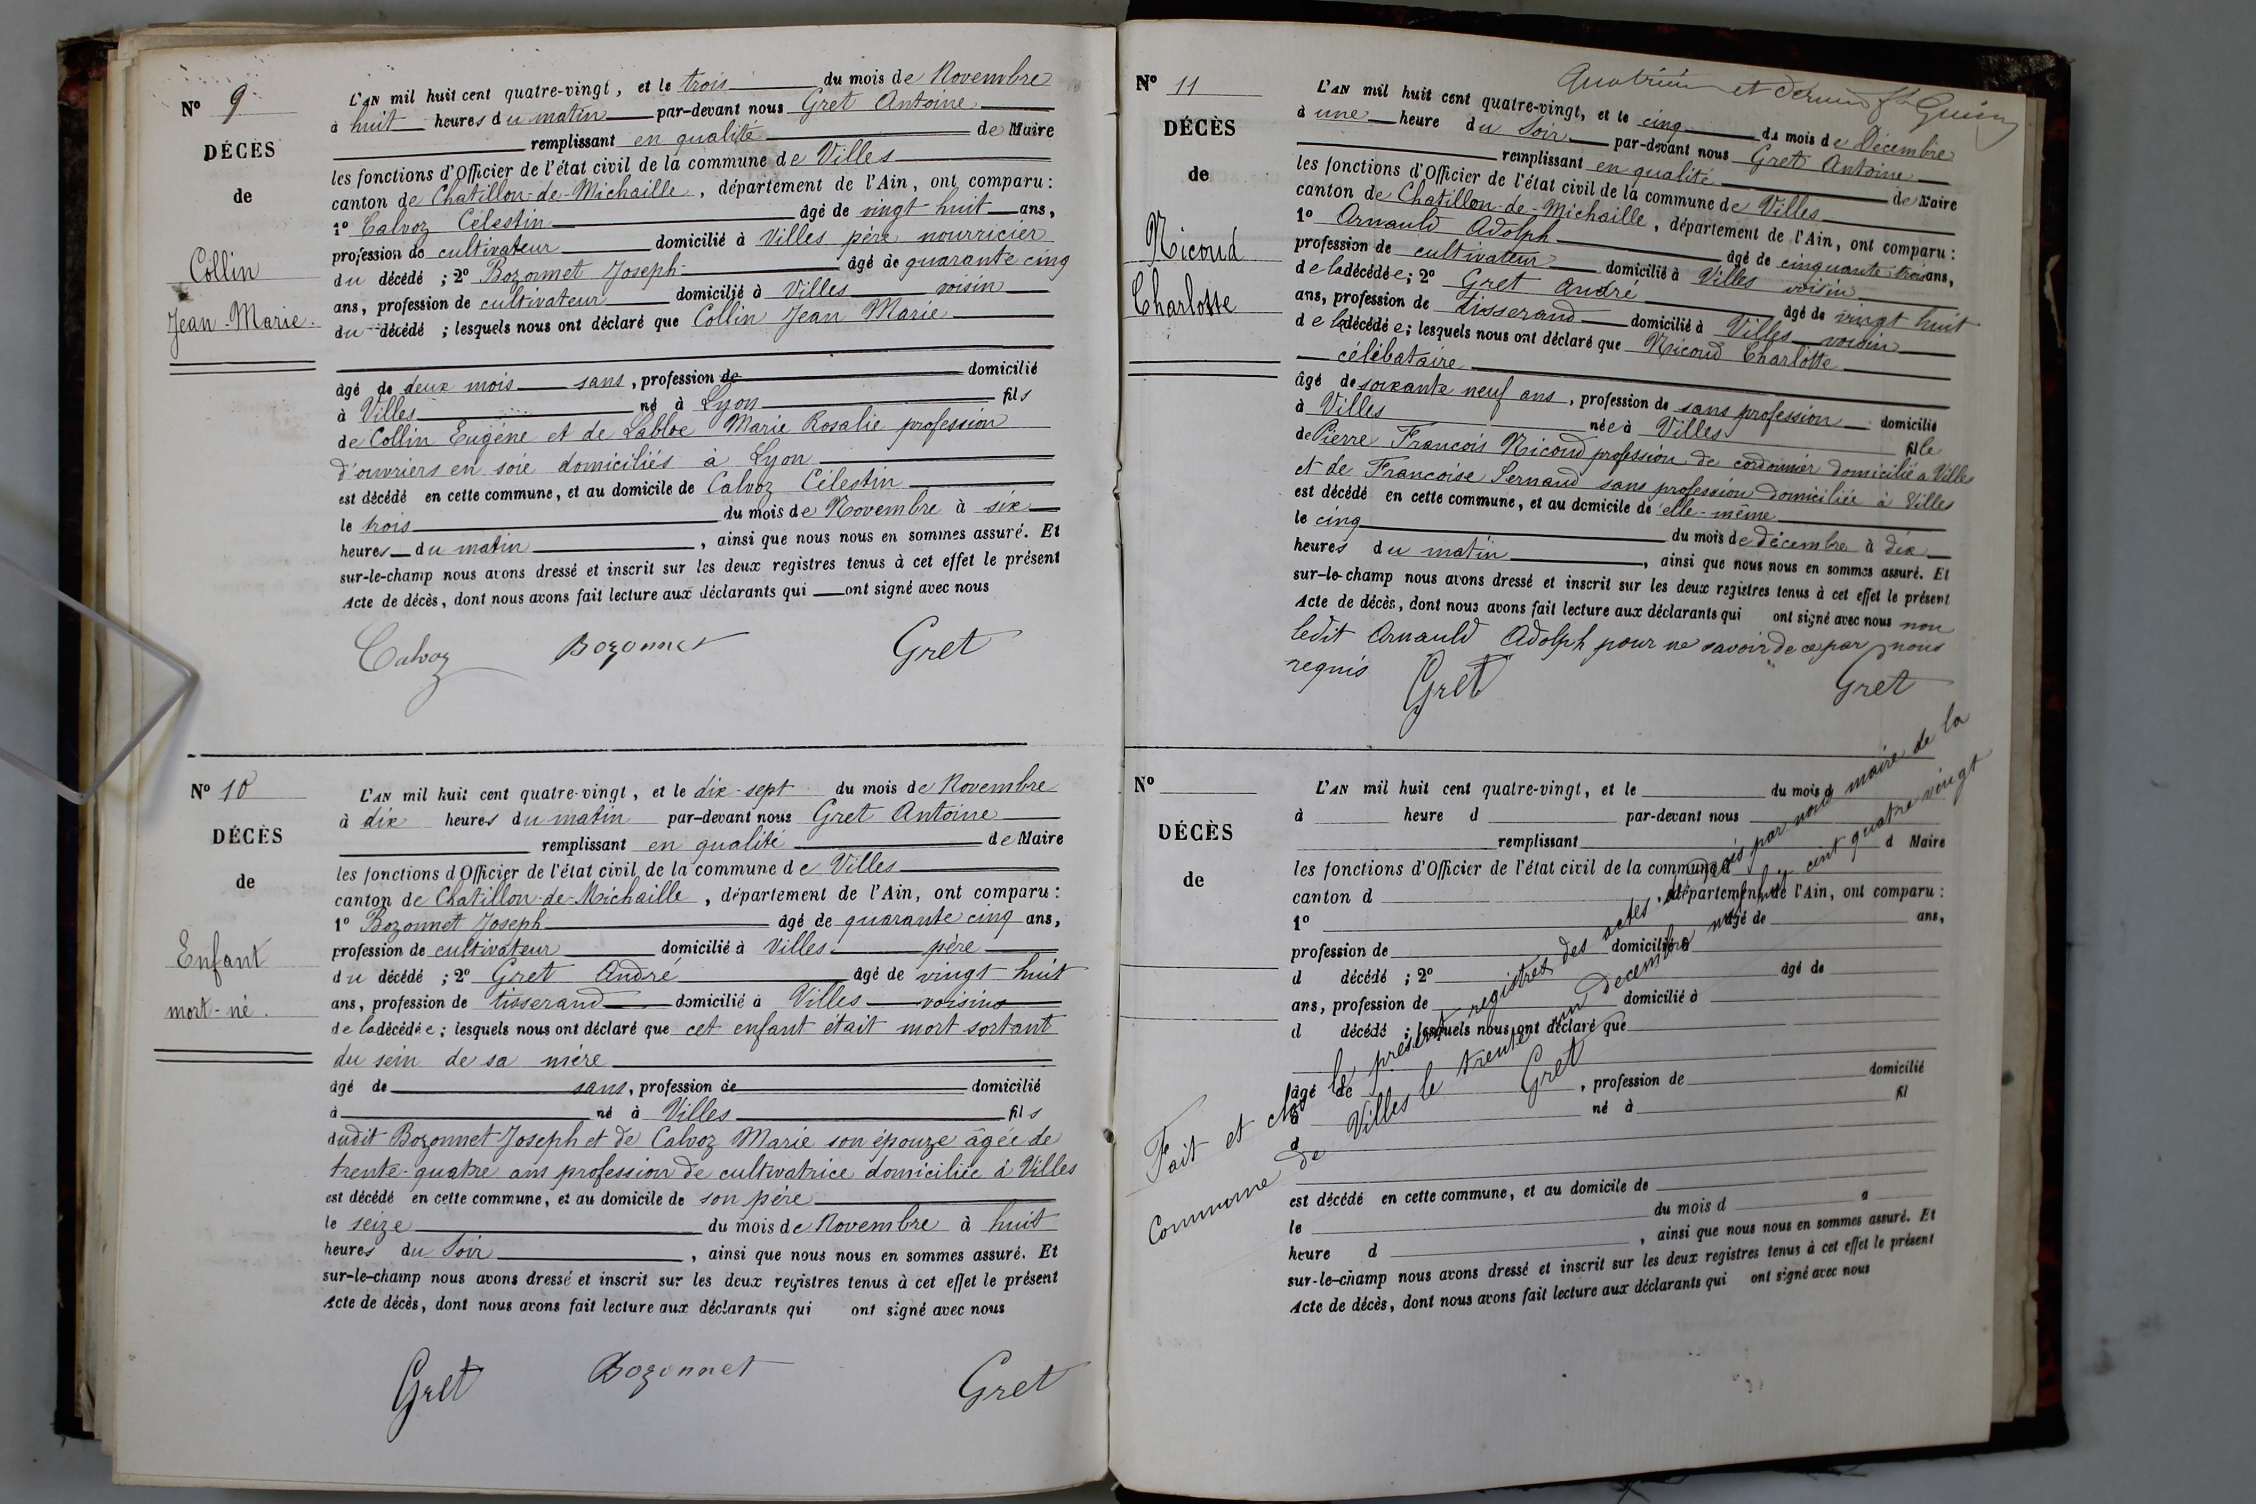 Nº 9
DÉCÈS
de
Collin
Jean-Marie.
L'AN mil huit cent quatre-vingt, et le trois du mois de Novembre
à huit heures du matin par-devant nous Gret Antoine
remplissant en qualité de Maire
les fonctions d'Officier de l'état civil de la commune de Villes
canton de Chatillon-de-Michaille, département de l'Ain, ont comparu:
1º Calvoz Célestin âgé de vingt huit ans,
profession de cultivateur domicilié à Villes père nourricier
du décédé ; 2º Bozonnet Joseph âgé de quarante cinq
ans, profession de cultivateur domicilié à Villes voisin
du décédé ; lesquels nous ont déclaré que Collin Jean Marie
âgé de deux mois sans, profession de domicilié
à Villes né à Lyon fils
de Collin Eugéne et de Labloe Marie Rosalie profession
d'ouvriers en soie domiciliés à Lyon
est décédé en cette commune, et au domicile de Calvoz Célestin
le trois du mois de Novembre à six
heures du matin, ainsi que nous nous en sommes assuré. Et
sur-le-champ nous avons dressé et inscrit sur les deux registres tenus à cet effet le présent
Acte de décès, dont nous avons fait lecture aux déclarants qui ont signé avec nous
Calvoz Bozonnet Gret
Nº 10
DÉCÈS
de
Enfant
mort-né.
L'AN mil huit cent quatre-vingt, et le dix-sept du mois de Novembre
à dix heures du matin par-devant nous Gret Antoine
remplissant en qualité de Maire
les fonctions d'Officier de l'état civil de la commune de Villes
canton de Chatillon-de-Michaille, département de l'Ain, ont comparu:
1º Bozonnet Joseph âgé de quarante cinq ans,
profession de cultivateur domicilié à Villes père
du décédé ; 2º Gret André âgé de vingt huit
ans, profession de tisserand domicilié à Villes voisins
de la décédée; lesquels nous ont déclaré que cet enfant était mort sortant
du sein de sa mère
âgé de sans, profession de domicilié
à né à Villes fils
dudit Bozonnet Joseph et de Calvoz Marie son épouze âgée de
trente-quatre ans profession de cultivatrice domiciliée à Villes
est décédé en cette commune, et au domicile de son père
le seize du mois de Novembre à huit
heures du Soir, ainsi que nous nous en sommes assuré. Et
sur-le-champ nous avons dressé et inscrit sur les deux registres tenus à cet effet le présent
Acte de décès, dont nous avons fait lecture aux déclarants qui ont signé avec nous
Gret Bozonnet Gret
Quatrième et dernier
Nº 11
DÉCÈS
de
Nicoud
Charlotte
L'AN mil huit cent quatre-vingt, et le cinq du mois de Décembre
à une heure du Soir par-devant nous Gret Antoine
remplissant en qualité de Maire
les fonctions d'Officier de l'état civil de la commune de Villes
canton de Chatillon-de-Michaille, département de l'Ain, ont comparu:
1º Arnauld Adolph âgé de cinquante trois ans,
profession de cultivateur domicilié à Villes voisin
de la décédée; 2º Gret André âgé de vingt huit
ans, profession de tisserand domicilié à Villes voisin
de la décédée; lesquels nous ont déclaré que Nicoud Charlotte
célébataire
âgé de soixante neuf ans, profession de sans profession domicilié
à Villes née à Villes fille
de Pierre François Nicoud profession de cordonnier domicilié a Villes
et de Francoise Sernaud sans profession domiciliée à Villes
est décédé en cette commune, et au domicile de elle-même
le cinq du mois de décembre à dix
heures du matin, ainsi que nous nous en sommes assuré. Et
sur-le-champ nous avons dressé et inscrit sur les deux registres tenus à cet effet le présent
Acte de décès, dont nous avons fait lecture aux déclarants qui ont signé avec nous non
ledit Arnauld Adolph pour ne savoir de ce par nous
requis
Gret Gret
Nº
DÉCÈS
de
L'AN mil huit cent quatre-vingt, et le du mois d
à heure d par-devant nous
remplissant d Maire
les fonctions d'Officier de l'état civil de la commune d
canton d, département de l'Ain, ont comparu:
1º âgé de ans,
profession de domicilié à
d décédé ; 2º âgé de
ans, profession de domicilié à
d décédé ; lesquels nous ont déclaré que
âgé de, profession de domicilié
à né à fil
d
est décédé en cette commune, et au domicile de
le du mois d à
heure d, ainsi que nous nous en sommes assuré. Et
sur-le-champ nous avons dressé et inscrit sur les deux registres tenus à cet effet le présent
Acte de décès, dont nous avons fait lecture aux déclarants qui ont signé avec nous
Fait et clos le présent registres des actes par nous maire de la
Commune de Villes le trente un decembre cent quatre vingt
Gret